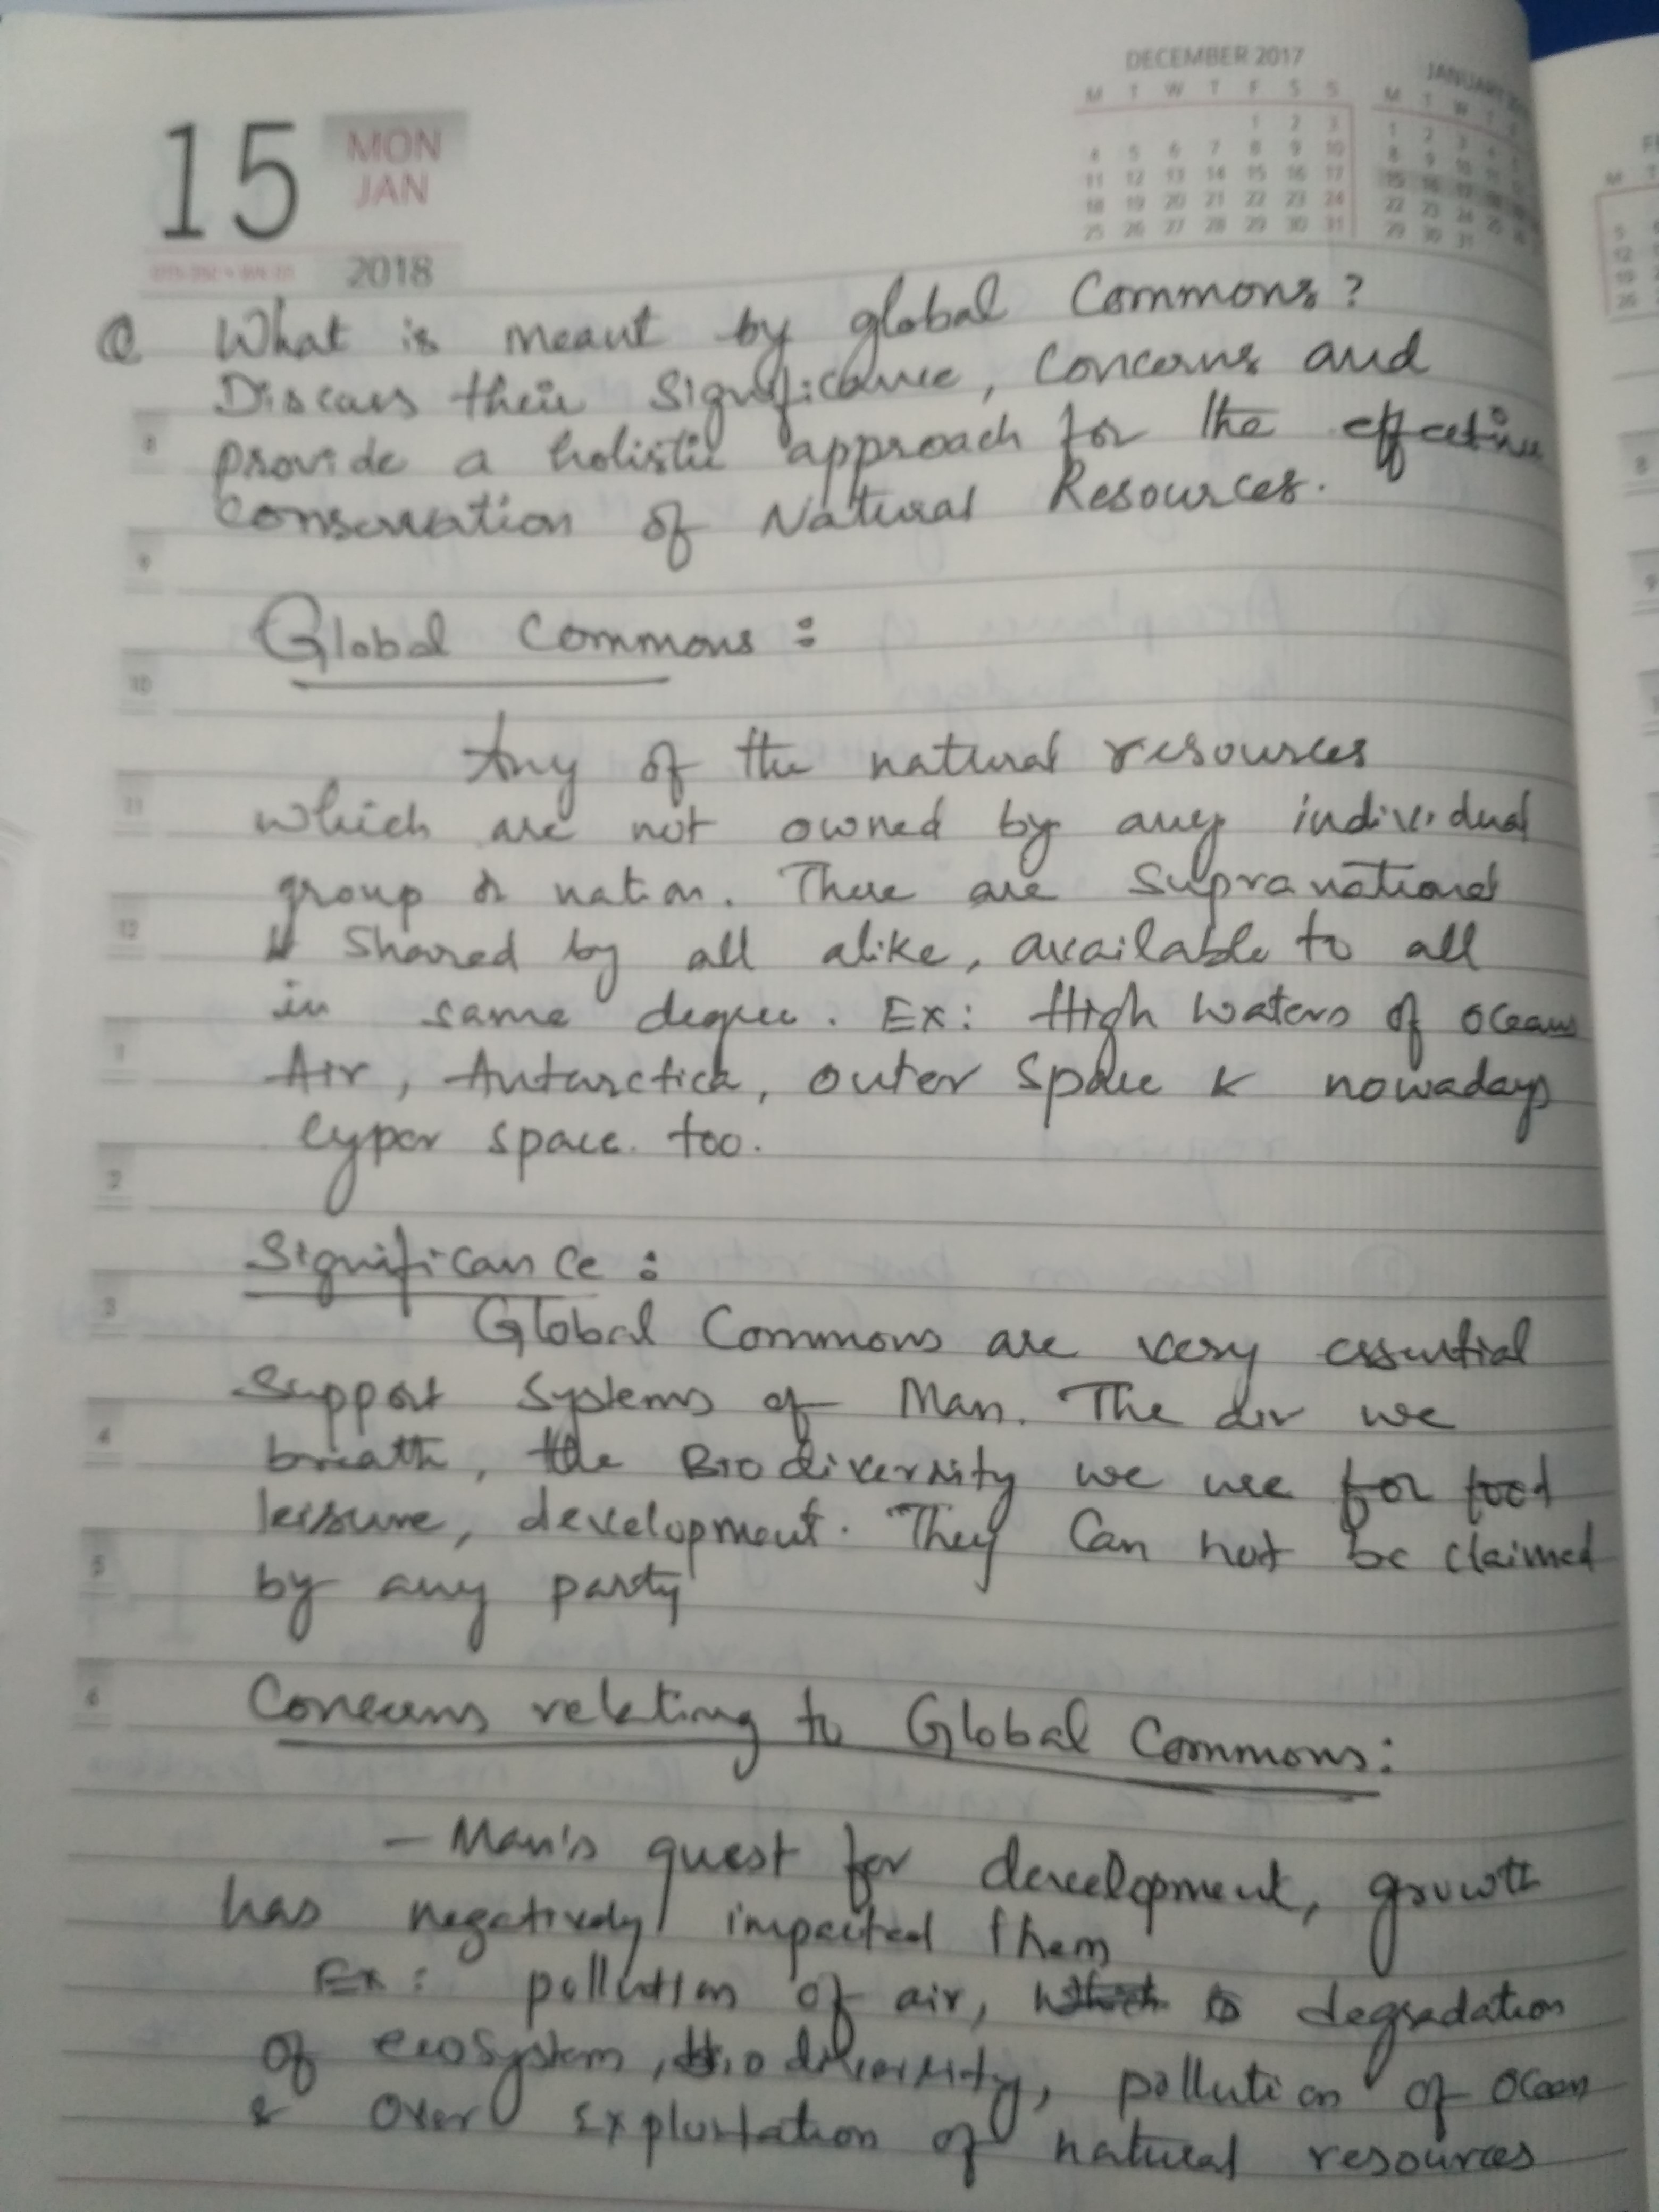 DECEMBER 2017
M T W T F S S
1 2 3
4 5 6 7 8 9 10
11 12 13 14 15 16 17
18 19 20 21 22 23 24
25 26 27 28 29 30 31
JANUARY
M T W T
1 2 3 4
8 9 10 11
15 16 17 18
22 23 24 25
29 30 31
15 MON
JAN
2018
Q. What is meant by global Commons?
Discuss their Significance, Concerns and
provide a holistic approach for the effective
conservation of Natural Resources.
Global Commons:
Any of the natural resources
which are not owned by any individual
group or nation. There are Supranational
& Shared by all alike, available to all
in same degree. Ex: High Waters of oceans
Air, Antarctica, outer Space & nowadays
cyper space too.
Significance:
Global Commons are very essential
Support Systems of Man. The air we
breath, the Biodiversity we use for food
leisure, development. They Can not be claimed
by any party
Concerns relating to Global Commons:
– Man's quest for development, growth
has negatively impacted them
Ex: pollution of air, degradation
of ecosystem, biodiversity, pollution of ocean
& over explortation of natural resources
8
9
10
11
12
1
2
3
4
5
6